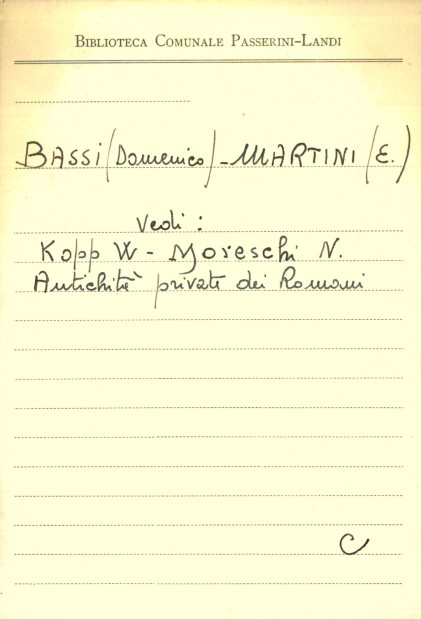 BIBLIOTECA COMUNALE PASSERINI-LANDI
BASSI (Domenico) - MARTINI (E.)
Vedi:
Kopp W - Moreschi N.
Antichità private dei Romani
C